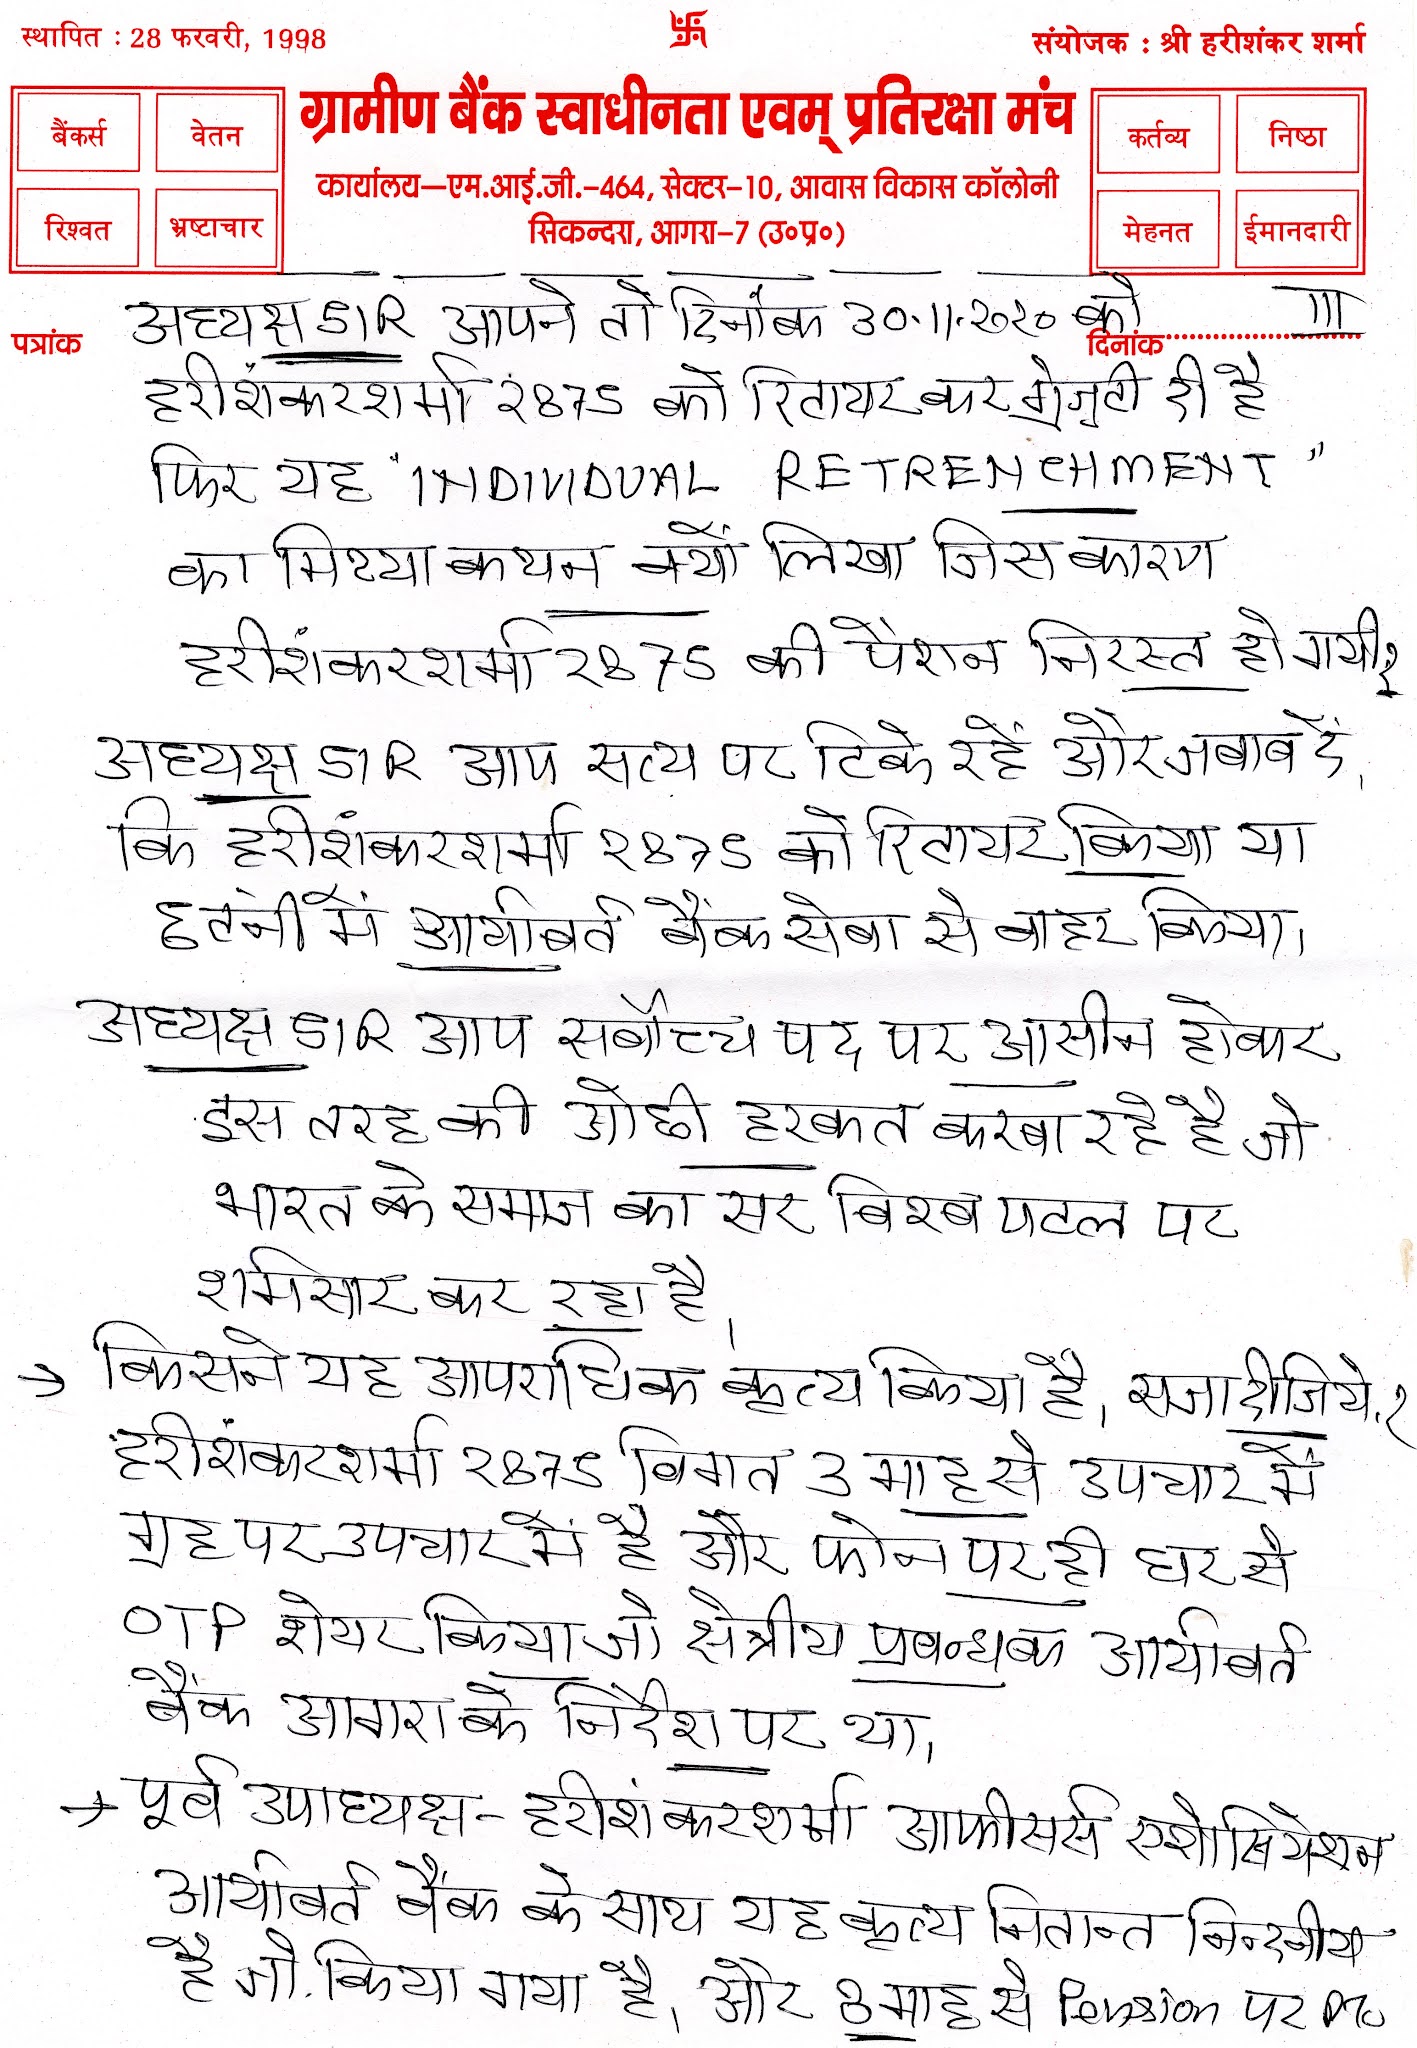 स्थापित : 28 फरवरी, 1998
संयोजक : श्री हरीशंकर शर्मा
बैंकर्स
वेतन
रिश्वत
भ्रष्टाचार
ग्रामीण बैंक स्वाधीनता एवम् प्रतिरक्षा मंच
कार्यालय–एम.आई.जी.–464, सेक्टर–10, आवास विकास कॉलोनी
सिकन्दरा, आगरा–7 (उ०प्र०)
कर्तव्य
निष्ठा
मेहनत
ईमानदारी
पत्रांक
दिनांक
III
अध्यक्ष SIR आपने तो दिनांक 30.11.2020 को
हरीशंकर शर्मा 2875 को रिटायर कर ग्रेजुटी दी है
फिर यह "INDIVIDUAL RETRENCHMENT"
का मिथ्या कथन क्यों लिखा जिस कारण
हरीशंकर शर्मा 2875 की पैंशन निरस्त हो गयी?
अध्यक्ष SIR आप सत्य पर टिके रहें और जबाब दें,
कि हरीशंकर शर्मा 2875 को रिटायर किया या
छटनी में आर्याबर्त बैंक सेबा से बाहर किया।
अध्यक्ष SIR आप सर्बोच्च पद पर आसीन होकर
इस तरह की ओछी हरकत करबा रहे है जो
भारत के समाज का सर बिश्ब पटल पर
शर्मसार कर रहा है।
→ किसने यह आपराधिक कृत्य किया है, सजा दीजिये.?
हरीशंकर शर्मा 2875 विगत 3 माह से उपचार में
ग्रह पर उपचार में है और फोन पर ही घर से
OTP शेयर किया जो क्षेत्रीय प्रबन्धक आर्याबर्त
बैंक आगरा के निर्देश पर था।
→ पूर्व उपाध्यक्ष - हरीशंकर शर्मा आफीसर्स एशोसियेशन
आर्याबर्त बैंक के साथ यह कृत्य नितान्त निन्दनीय
है जो. किया गया है, और 8 माह से Pension पर